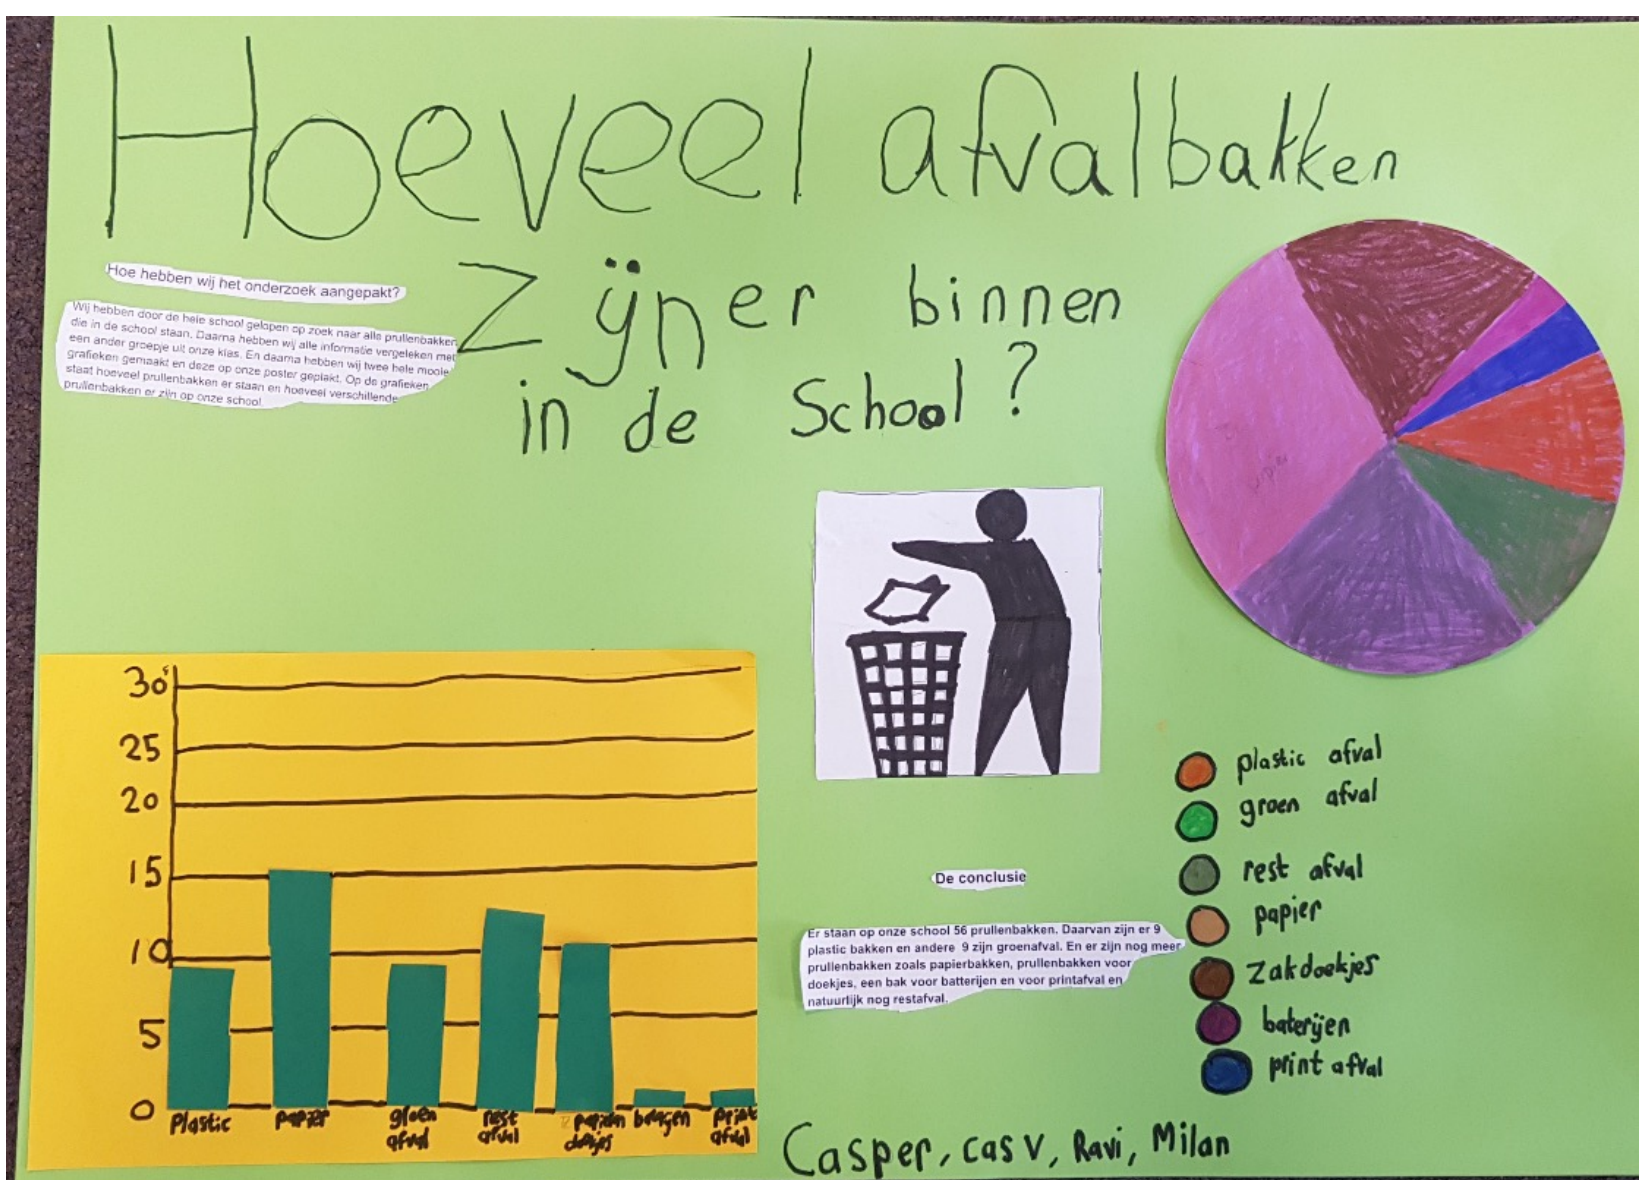 Hoeveel afvalbakken
Zijn er binnen
in de School?
Hoe hebben wij het onderzoek aangepakt?
Wij hebben door de hele school gelopen op zoek naar alle prullenbakken
die in de school staan. Daarna hebben wij alle informatie vergeleken met
een ander groepje uit onze klas. En daarna hebben wij twee hele mooie
grafieken gemaakt en deze op onze poster geplakt. Op de grafieken
staat hoeveel prullenbakken er staan en hoeveel verschillende
prullenbakken er zijn op onze school.
30
25
20
15
10
5
0
Plastic
papier
groen
afval
rest
afval
papieren
doekjes
print
afval
De conclusie
Er staan op onze school 56 prullenbakken. Daarvan zijn er 9
plastic bakken en andere 9 zijn groenafval. En er zijn nog meer
prullenbakken zoals papierbakken, prullenbakken voor
doekjes, een bak voor batterijen en voor printafval en
natuurlijk nog restafval.
plastic afval
groen afval
rest afval
papier
zakdoekjes
baterijen
print afval
Casper, cas v, Ravi, Milan